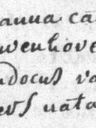 anna ca
wenhove
docus va
ers nata